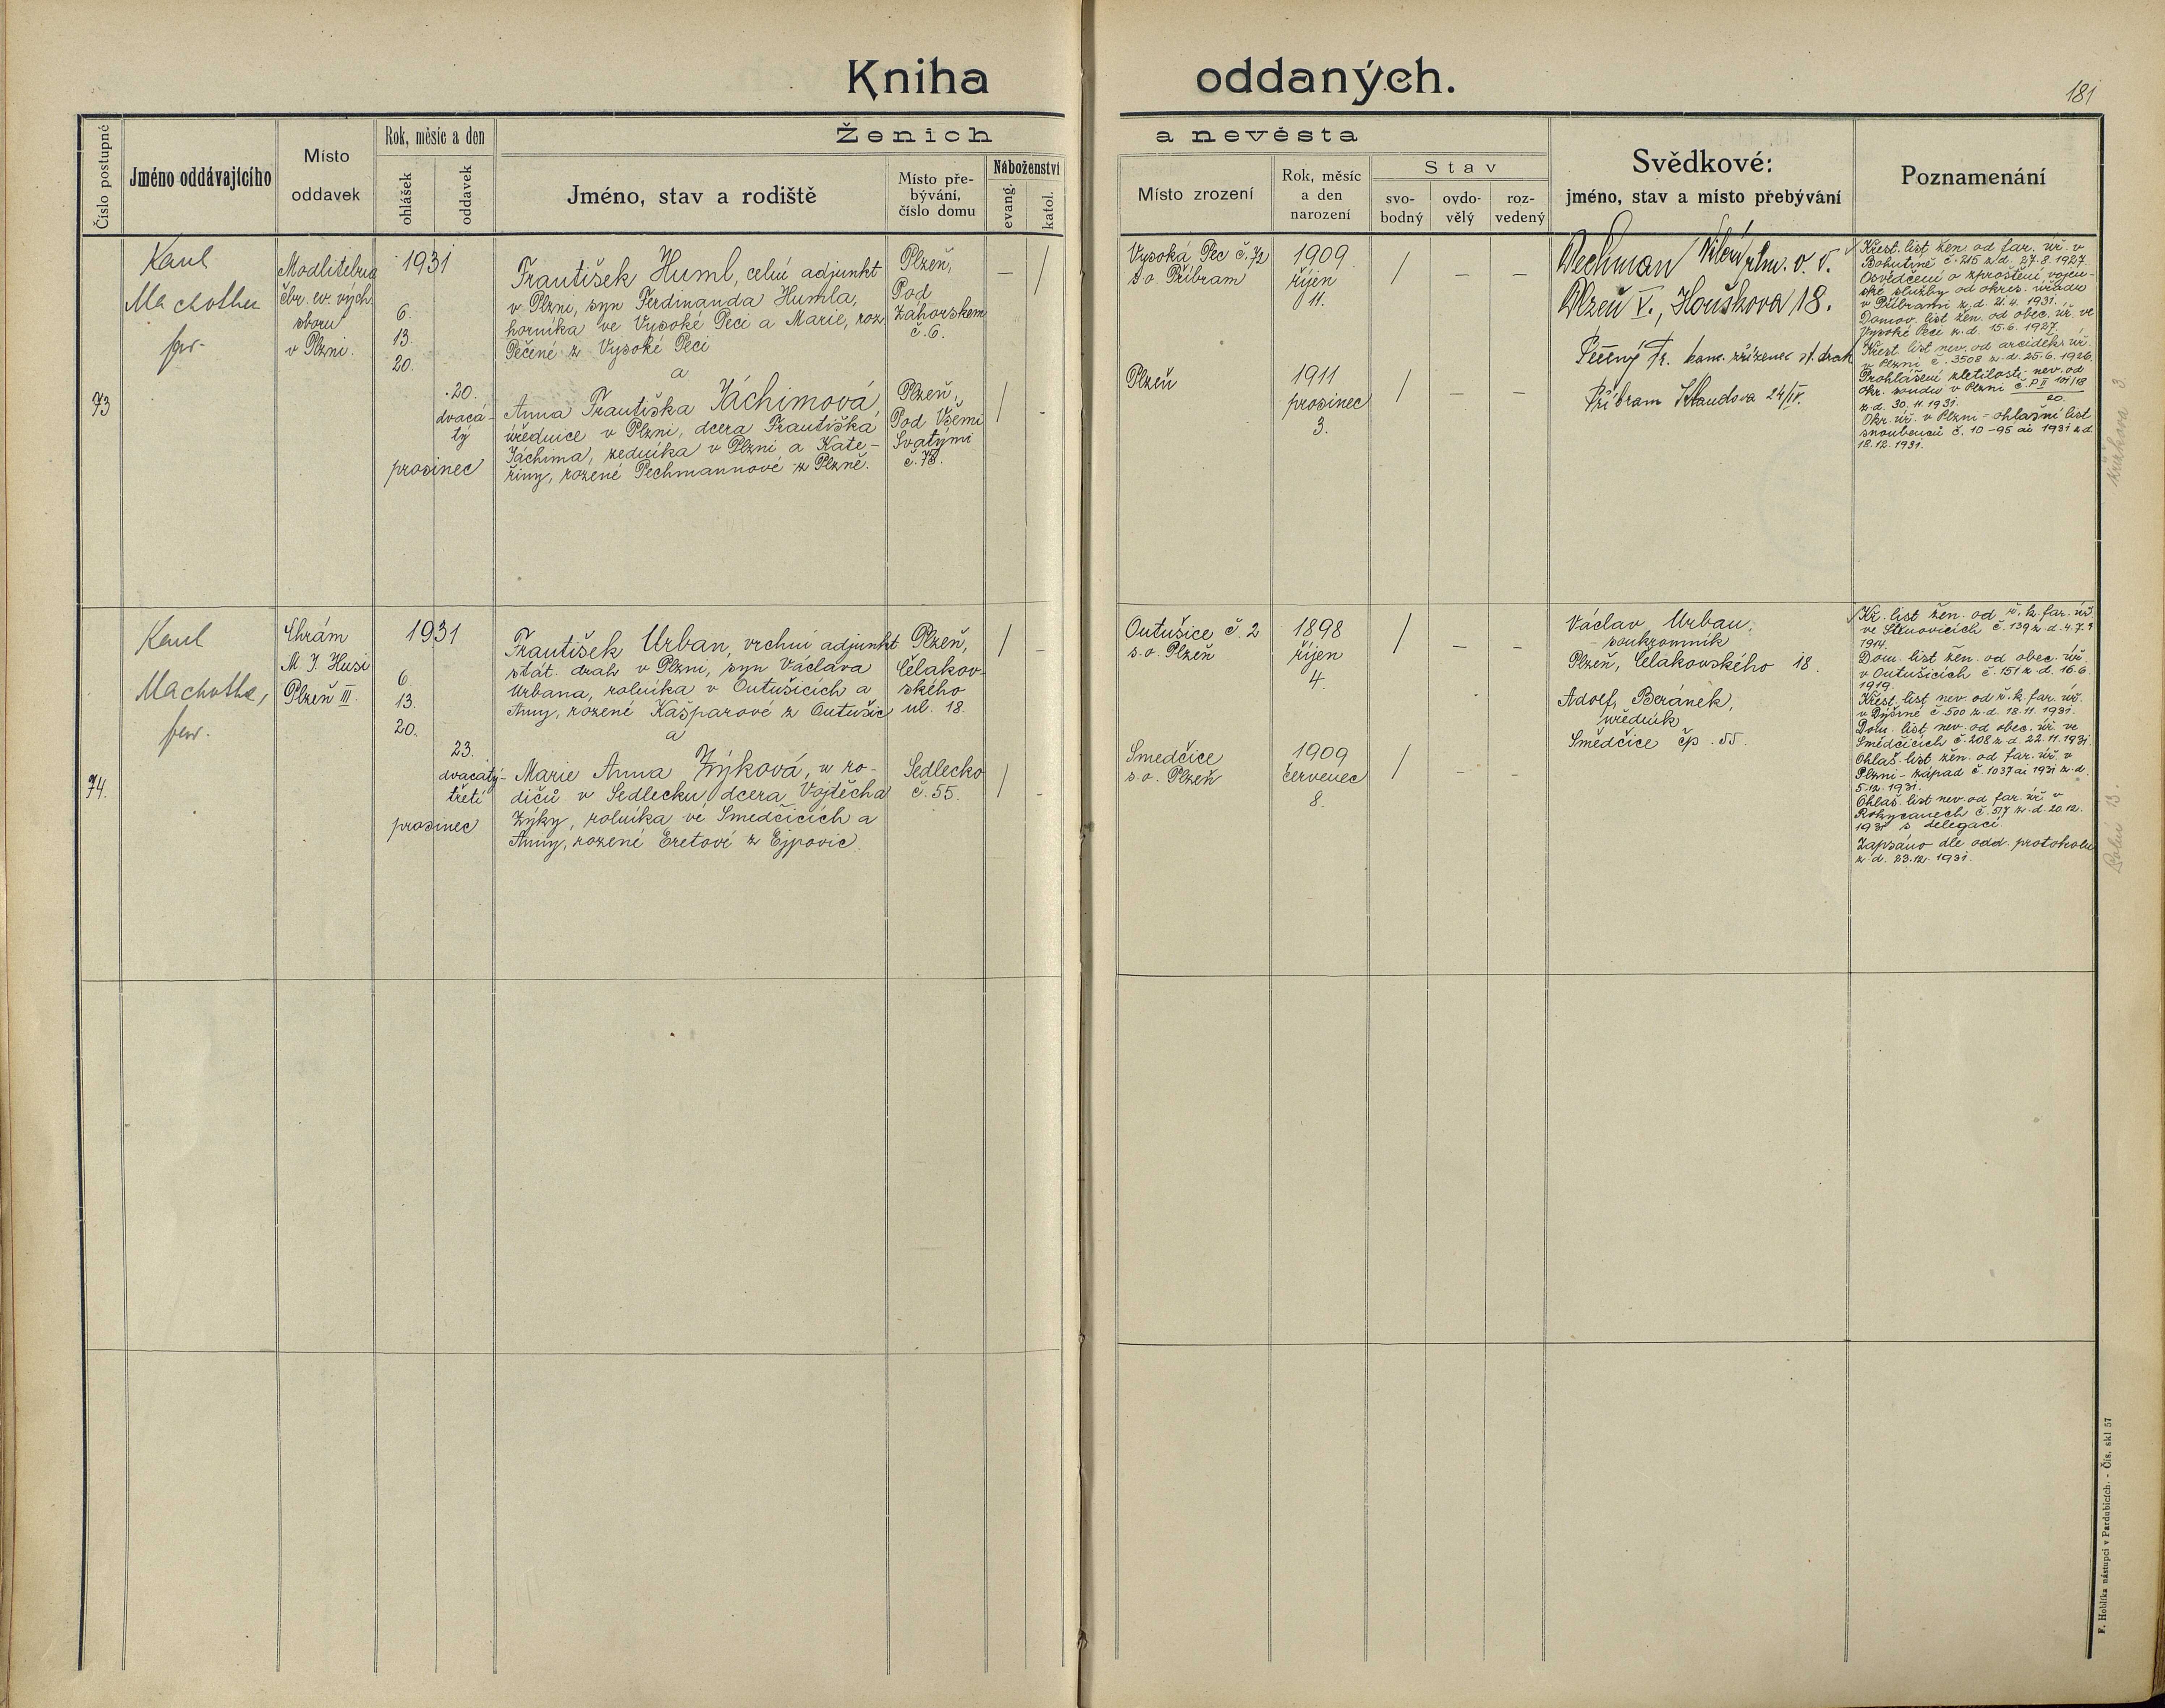 Kniha oddaných.
181
Číslo postupné
Jméno oddávajícího
Místo
oddavek
Rok, měsíc a den
ohlášek
oddavek
Ženich a nevěsta
Jméno, stav a rodiště
Místo pře-
bývání,
číslo domu
Náboženství
evang.
katol.
Místo zrození
Rok, měsíc
a den
narození
Stav
svo-
bodný
ovdo-
vělý
roz-
vedený
Svědkové:
jméno, stav a místo přebývání
Poznamenání
73
Karel
Machotka
far.
Modlitebna
čbr. ev. vých.
sboru
v Plzni.
1931
6.
13.
20.
20.
dvacá-
tý
prosinec
František Huml, celní adjunkt
v Plzni, syn Ferdinanda Humla,
horníka ve Vysoké Peci a Marie, roz.
Pečené z Vysoké Peci
a
Anna Františka Jáchimová,
úřednice v Plzni, dcera Františka
Jáchima, zedníka v Plzni a Kate-
řiny, rozené Pechmannové z Plzně.
Plzeň,
Pod
Záhorskem
č. 6.
Plzeň,
Pod Všemi
Svatými
č. 78.
— /
/ -
Vysoká Pec č. 72
s. o. Příbram
1909
říjen
11.
/ — —
Plzeň
1911
prosinec
3.
/ — —
Pechman
v. v.
Plzeň V., Houškova 18.
Pečený Fr. kanc. zřízenec st. drah
Příbram 24/IV.
Křest. list žen. od far. úř. v
Bohutíně č. 215 z d. 27.8.1927.
Osvědčení o zproštění vojen-
ské služby od okres. úřadu
v Příbrami z d. 21.4.1931.
Domov. list žen. od obec. úř. ve
Vysoké Peci z d. 15.6.1927.
Křest. list nev. od arciděk. úř.
v Plzni č. 3508 z d. 25.6.1926
Prohlášení zletilosti nev. od
okr. soudu v Plzni č. P II 101/18
20
z d. 30.11.1931.
Okr. úř. v Plzni - ohlašní list
snoubenců č. 10-95 ai 1931 z d.
18.12.1931.
74.
Karel
Machotka,
far.
Chrám
M. J. Husi
Plzeň III.
1931
6.
13.
20.
23.
dvacátý-
třetí
prosinec
František Urban, vrchní adjunkt
stát. drah v Plzni, syn Václava
Urbana, rolníka v Outušicích a
Anny, rozené Kašparové z Outušic
a
Marie Anna Zýková, u ro-
dičů v Sedlecku, dcera Vojtěcha
Zýky, rolníka ve Smedčicích a
Anny, rozené Eretové z Ejpovic.
Plzeň,
Čelakov-
ského
ul. 18.
Sedlecko
č. 55.
/ -
/ -
Outušice č. 2
s. o. Plzeň
1898
říjen
4.
/ — —
Smedčice
s. o. Plzeň
1909
červenec
8.
/ - -
Václav Urban,
soukromník
Plzeň, Čelakovského 18.
Adolf Beránek,
úředník
Smědčice čp. 55.
Kř. list žen. od ř. k. far. úř.
ve Štěnovicích č. 139 z d. 4.7.
1914.
Dom. list žen. od obec. úř.
v Outušicích č. 151 z d. 16.6.
1919.
Křest. list nev. od ř. k. far. úř.
v Dýšině č. 500 z d. 18.11.1931.
Dom. list nev. od obec. úř. ve
Smědčicích č. 208 z d. 22.11.1931.
Ohlaš. list žen. od far. úř. v
Plzni - západ č. 1037 ai 1931 z d.
5.12.1931.
Ohlaš. list nev. od far. úř. v
Rokycanech č. 517 z d. 20.12.
1931 s delegací.
Zapsáno dle odd. protokolu
z d. 23.12.1931.
F. Hoblíka nástupci v Pardubicích. - Čís. skl 57